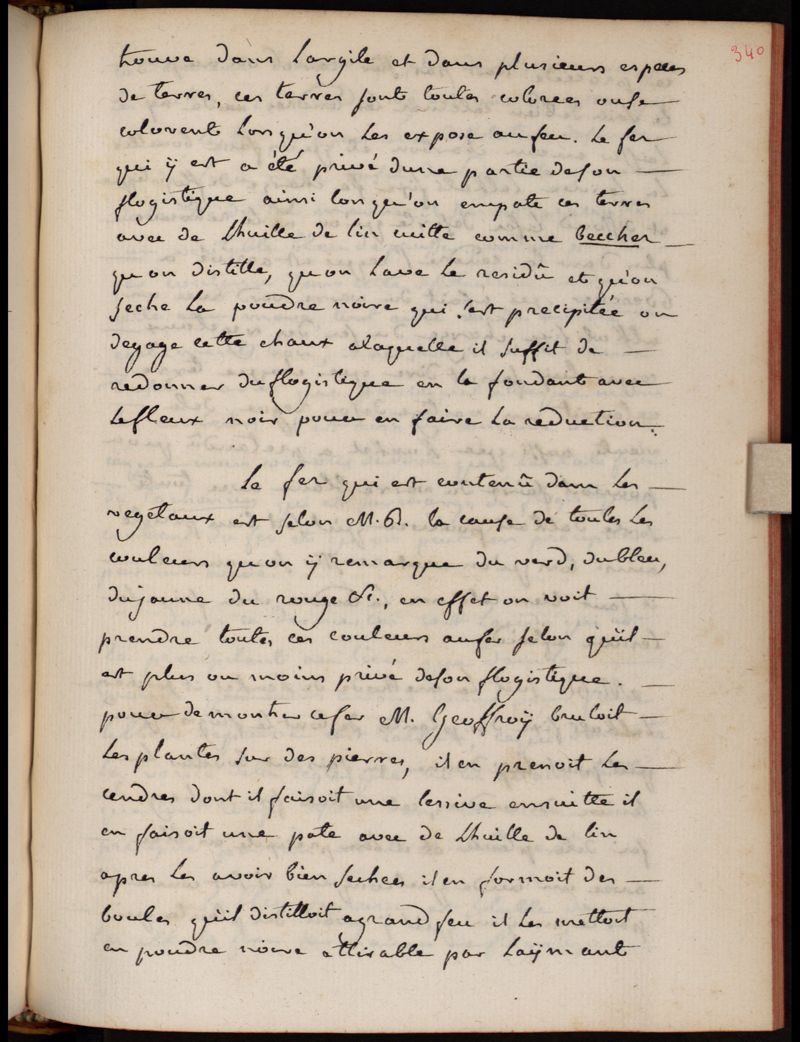 340
trouve dans Largile et dans plusieurs especes
de terres, ces terres sont toutes colorées ouse
colorent Lorsqu'on Les expose aufeu. Le fer
qui ÿ est a été privé dune partie deson —
flogistique ainsi lorsqu'on empate ces terres
avec de Lhuille de lin cuitte comme beccher —
qu'on distille, qu'on Lave Le residû et qu'on
seche La poudre noire qui s'est precipitée on
degage cette chaux alaquelle il suffit de —
redonner duflogistique en la fondant avec
Lefleux noir pour en faire La reduction.
Le fer qui est contenû dans Les —
vegetaux est selon M. B. la cause de toutes Les
couleurs qu'on ÿ remarque du verd, dubleu,
dujaune du rouge &c., en effet on voit —
prendre toutes ces couleurs aufer selon qu'il —
est plus ou moins privé deson flogistique. —
pour demontrer cefer M. Geoffroÿ bruloit —
Les plantes sur des pierres, il en prenoit Les —
cendres dont il faisoit une lessive ensuitte il
en faisoit une pate avec de Lhuille de lin
apres Les avoir bien sechées il en formoit des —
boules qu'il distilloit agrand feu il Les mettoit
en poudre noire attirable par Laÿmant